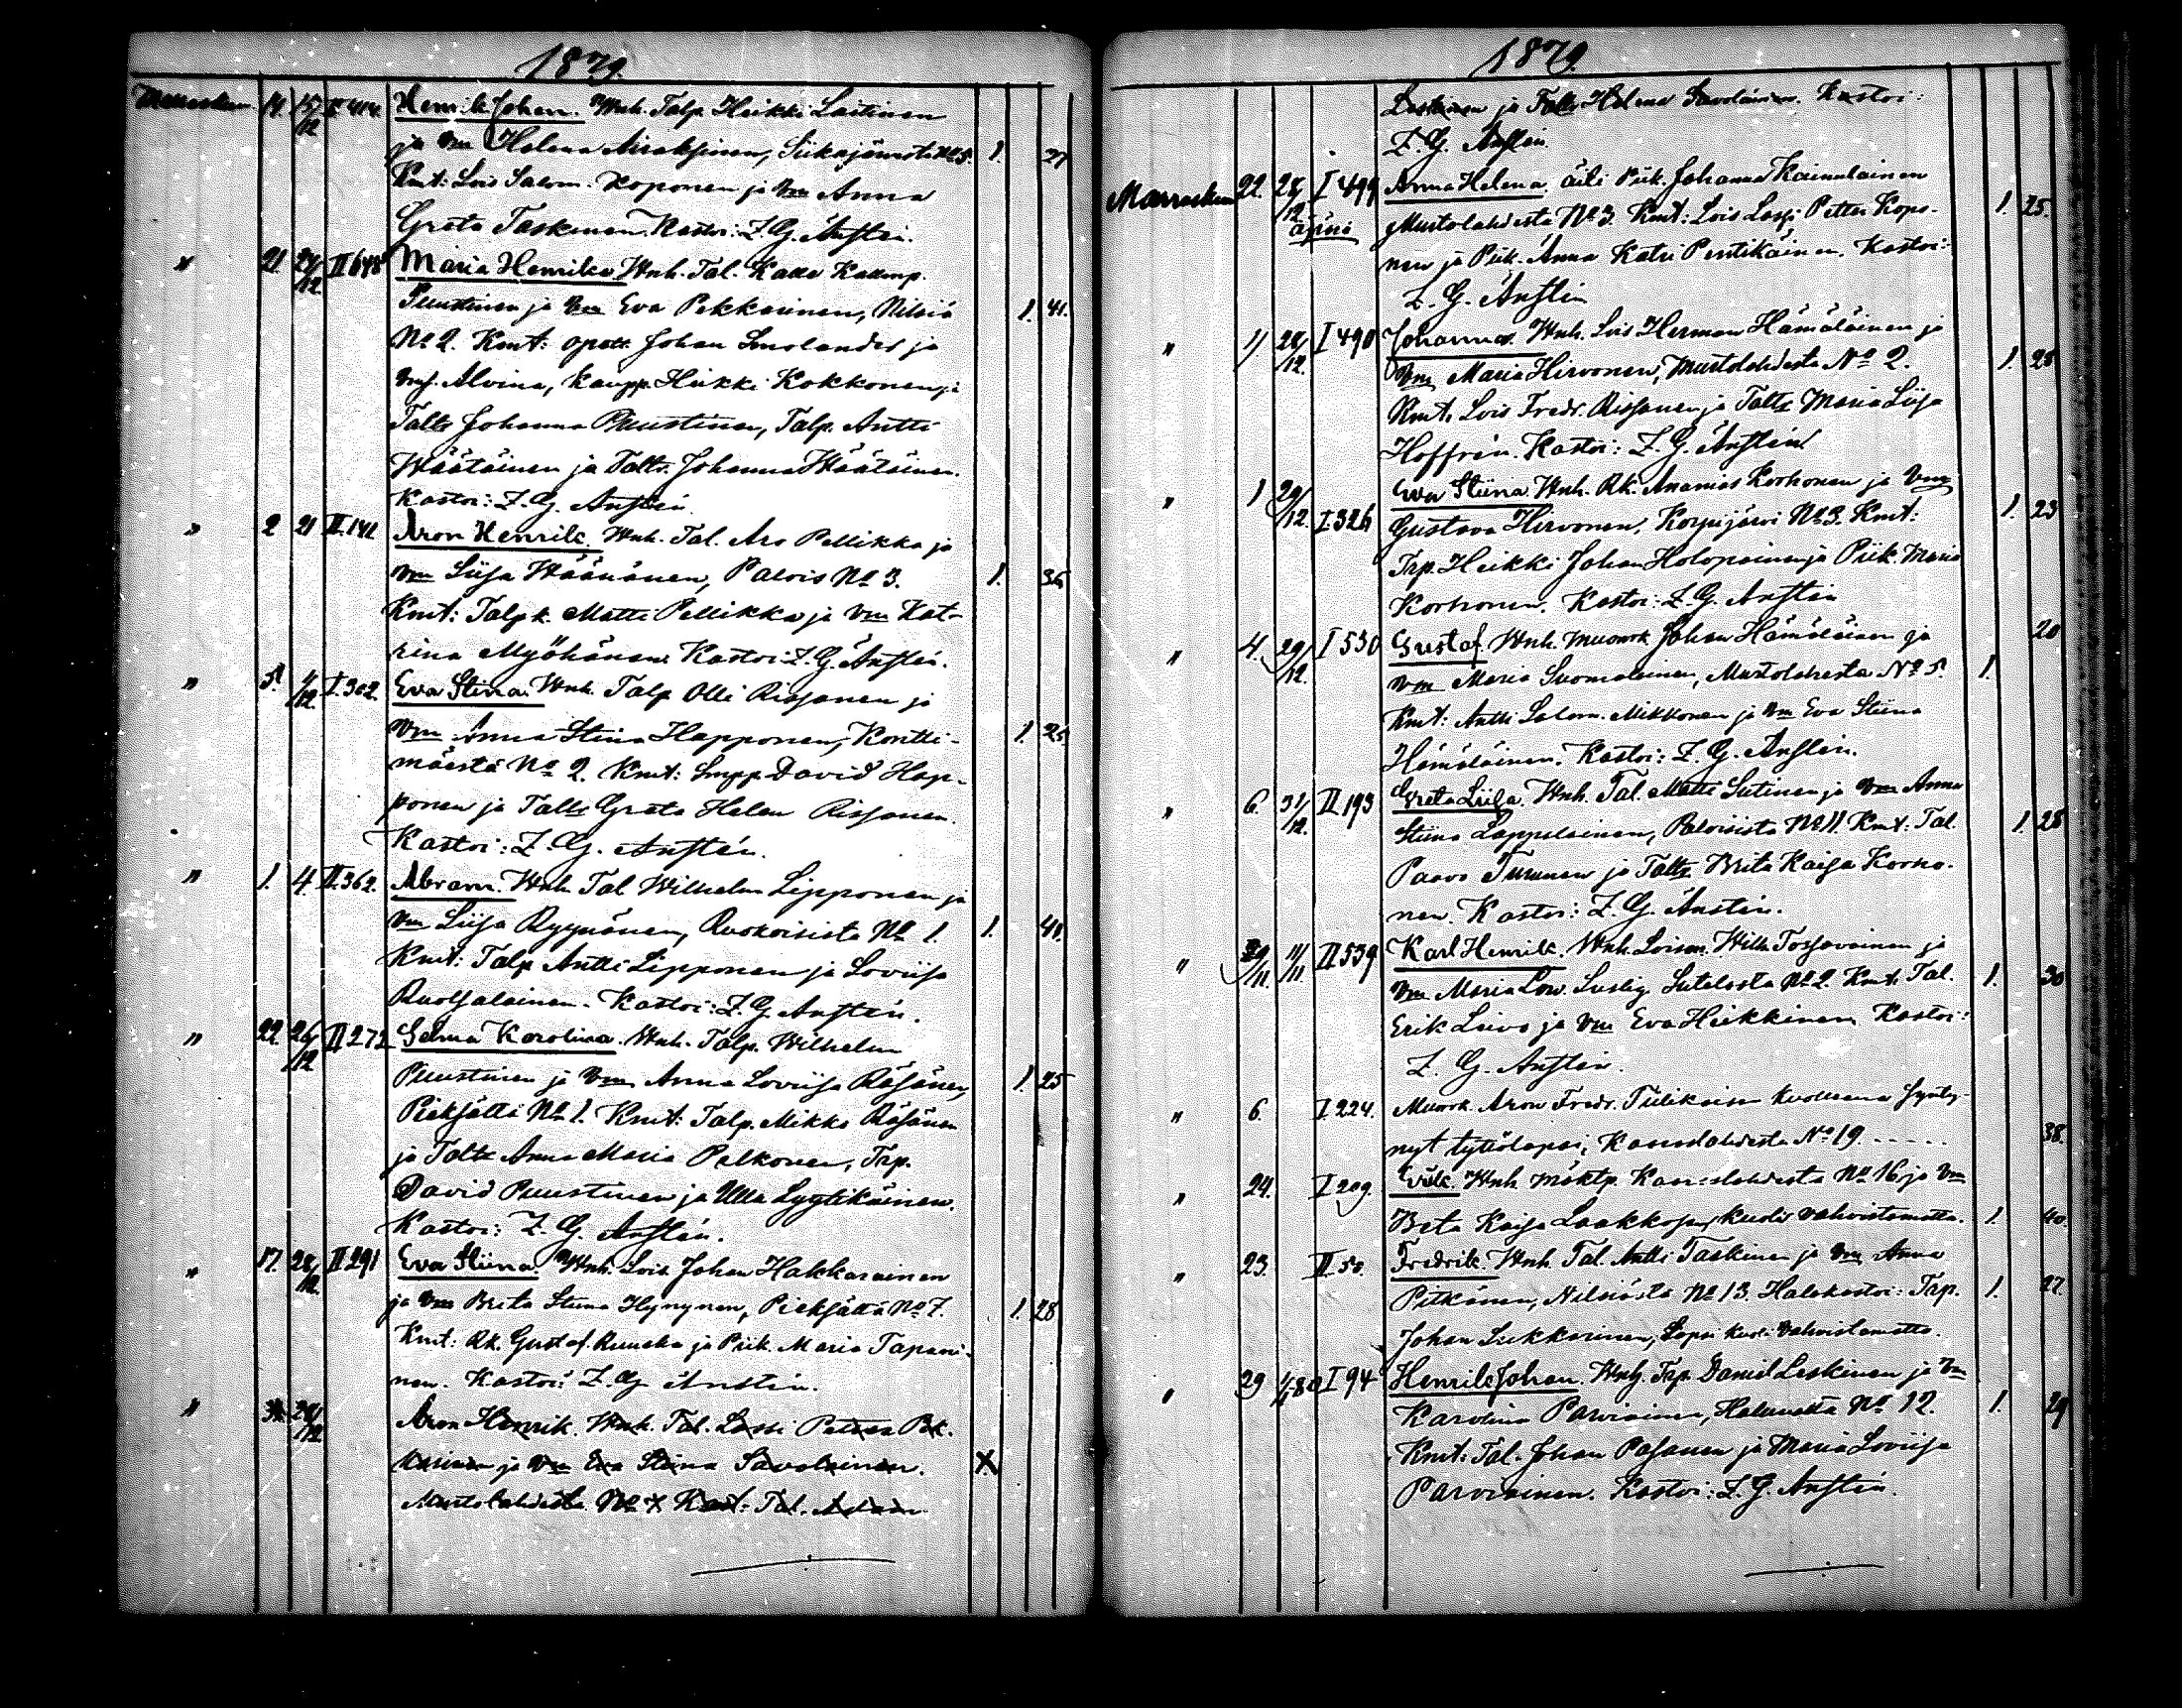 1879.
Marraskuu 14. 15/12 II 414. Henrik Johan. Wnh. Talp. Heikki Laitinen
ja Vm Helena Airaksinen, Siikajärveltä No 5. 1. 27
Kmt: Lois Salom. Koponen ja Vm Anna
Greta Taskinen. Kastoi: Z. G. Anstén.
" 21 24/12 II 648 Maria Henrika Wnh. Tal. Kalle Kallenp.
Puustinen ja Vm Eva Pekkarinen, Nilsiä 1. 41.
No 2. Kmt: opett. Johan Smolander ja
Alvina, Kaupp. Heikki Kokkonen ja
Taltr Johanna Puustinen, Talp. Antti
Väätäinen ja Taltr. Johanna Väätäinen.
Kastoi: Z. G. Anstén.
" 2 21 II. 141 Aron Henrik. Wnh. Tal. Aro Pellikka ja
Vm Liisa Väänänen, Palois No 3. 1. 36
Kmt: Talp k. Matti Pellikka ja Vm Kat-
rina Myöhänen. Kastoi: Z. G. Anstén.
" 5. 4/12 I. 302. Eva Stina. Wnh. Talp Olli Rissanen ja
Vm Anna Stina Happonen, Kontti- 1. 25
mäestä No 2. Kmt: David Hap-
ponen ja Taltr Greta Helen Rissanen.
Kastoi: Z. G. Anstén.
" 1. 4. II. 362. Abram. Wnh. Tal Wilhelm Lipponen ja
Vm Liisa Ryynänen, Ruokoisista No 1. 1. 40.
Kmt: Talp Antti Lipponen ja Loviisa
Ruotsalainen. Kastoi: Z. G. Anstén.
" 22 26/12 II 272 Selma Karolina. Wnh. Talp. Wilhelm
Puustinen ja Vm Anna Loviisa Räsänen, 1. 25
Pieksättä No 1. Kmt: Talp. Mikko Räsänen
ja Taltr Anna Maria Pelkonen, Tap.
David Puustinen ja Ulla Lyytikäinen.
Kastoi: Z. G. Anstén.
" 17. 28/12 II 291 Eva Stiina. Wnh. Lois. Johan Hakkarainen
ja Vm Brita Stiina Hynynen, Pieksättä No 7. 1. 28
Kmt: Rk. Gustaf Ruuska ja Piik. Maria Tapani-
nen. Kastoi: Z. G. Anstén.
" 28/12 Aron Henrik. Wnh. Tal. Lassi
ja Vm Eva Stiina Savolainen. X
Mustolahdesta No Kmt: Tal.
1879.
Leskinen ja Taltr Helena Savolainen. Kastoi:
Z. G. Anstén.
Marraskuu 22. 28/12 I 499 Anna Helena, äiti Piik. Johanna Kainulainen
äpärä Mustolahdesta No 3. Kmt: Lois Lassi Petter Kopo- 1. 25.
nen ja Piik. Anna Katri Pentikäinen. Kastoi:
Z. G. Anstén
" 11 28/12. I 490 Johannes. Wnh. Lois Herman Hämäläinen ja
Vm Maria Hirvonen, Mustolahdesta No 2. 1. 28
Kmt. Lois Fredr. Rissanen ja Taltr Maria Liisa
Hoffrén. Kastoi: Z. G. Anstén
" 1 29/12. I 326 Eva Stiina. Wnh. Rk. Ananias Korhonen ja Vm
Gustava Hirvonen, Korpijärvi No 3. Kmt: 1. 23
Tap. Heikki Johan Holopainen ja Piik. Maria
Korhonen. Kastoi: Z. G. Anstén
" 4. 29/12. I 530 Gustaf. Wnh. Johan Hämäläinen ja 20
Vm Maria Suomalainen, Mustolahdesta No 5. 1.
Kmt: Antti Salom. Mikkonen ja Vm Eva Stiina
Hämäläinen. Kastoi: Z. G. Anstén.
" 6. 31/12. II 193 Greta Liisa. Wnh. Tal. Matti Sutinen ja Vm Anna
Stiina Lappalainen, Paloisista No 11. Kmt: Tal. 1. 28
Paavo Turunen ja Taltr Brita Kaisa Korho-
nen. Kastoi: Z. G. Anstén.
" 29/11. 11/11. II 539 Karl Henrik. Wnh. Loism. Wilh. Tossavainen ja
Vm Maria Lov. Sutelasta No 2. Kmt. Tal. 1. 30
Erik Leivo ja Vm Eva Heikkinen. Kastoi:
Z. G. Anstén.
" 6. I 224. Aron Fredr. Tiilikaisen kuolleena synty-
nyt tyttölapsi, Kaaraslahdesta No 19. . . . . . 38.
" 24. I 209. Erik. Wnh Kaaraslahdesta No 16 ja Vm
Beta Kaisa Laakkonen, kuoli vahvistamatta. 1. 40.
" 23. II 50. Fredrik. Wnh. Tal. Antti Taskinen ja Vm Anna
Pitkänen, Nilsiästä No 13. Hätäkastoi: Tap. 1. 27.
Johan Sukkarinen, Lapsi kuoli vahvistamatta.
" 29 1/1 80 I 94 Henrik Johan. Wnh. Tap. Daniel Leskinen ja Vm
Karolina Parviainen, Halunalta No 12. 1. 29
Kmt: Tal. Johan Pasanen ja Maria Loviisa
Parviainen. Kastoi: Z. G. Anstén.